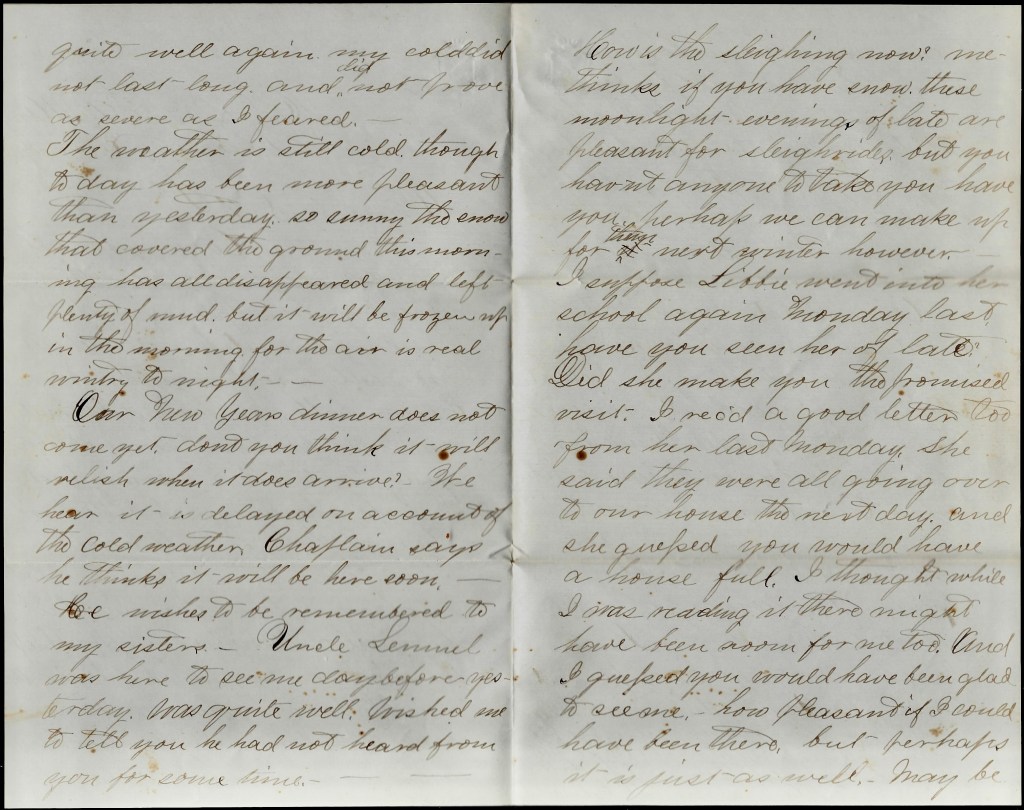 quite well again. my cold did
not last long. and did not prove
as severe as I feared. —
The weather is still cold. though
to day has been more pleasant
than yesterday. so sunny the snow
that covered the ground this morn-
ing has all disappeared and left
plenty of mud. but it will be frozen up
in the morning for the air is real
wintry to night. — —
Our New Years dinner does not
come yet. dont you think it will
relish when it does arrive? We
hear it is delayed on account of
the cold weather, Chaplain says
he thinks it will be here soon. —
He wishes to be remembered to
my sisters. — Uncle Lemuel
was here to see me day before yes-
terday. Was quite well. Wished me
to tell you he had not heard from
you for some time. — — —
How is the sleighing now? me-
thinks if you have snow. these
moonlight evenings of late are
pleasant for sleighrides. but you
havnt anyone to take you have
you. perhaps we can make up
for these next winter however. —
I suppose Libbie went into her
school again Monday last.
have you seen her of late?
Did she make you the promised
visit. I rec'd a good letter too
from her last Monday. She
said they were all going over
to our house the next day. and
she guessed you would have
a house full. I thought while
I was reading it there might
have been room for me too. And
I guessed you would have been glad
to see me. — how pleasant if I could
have been there, but perhaps
it is just as well. — May be